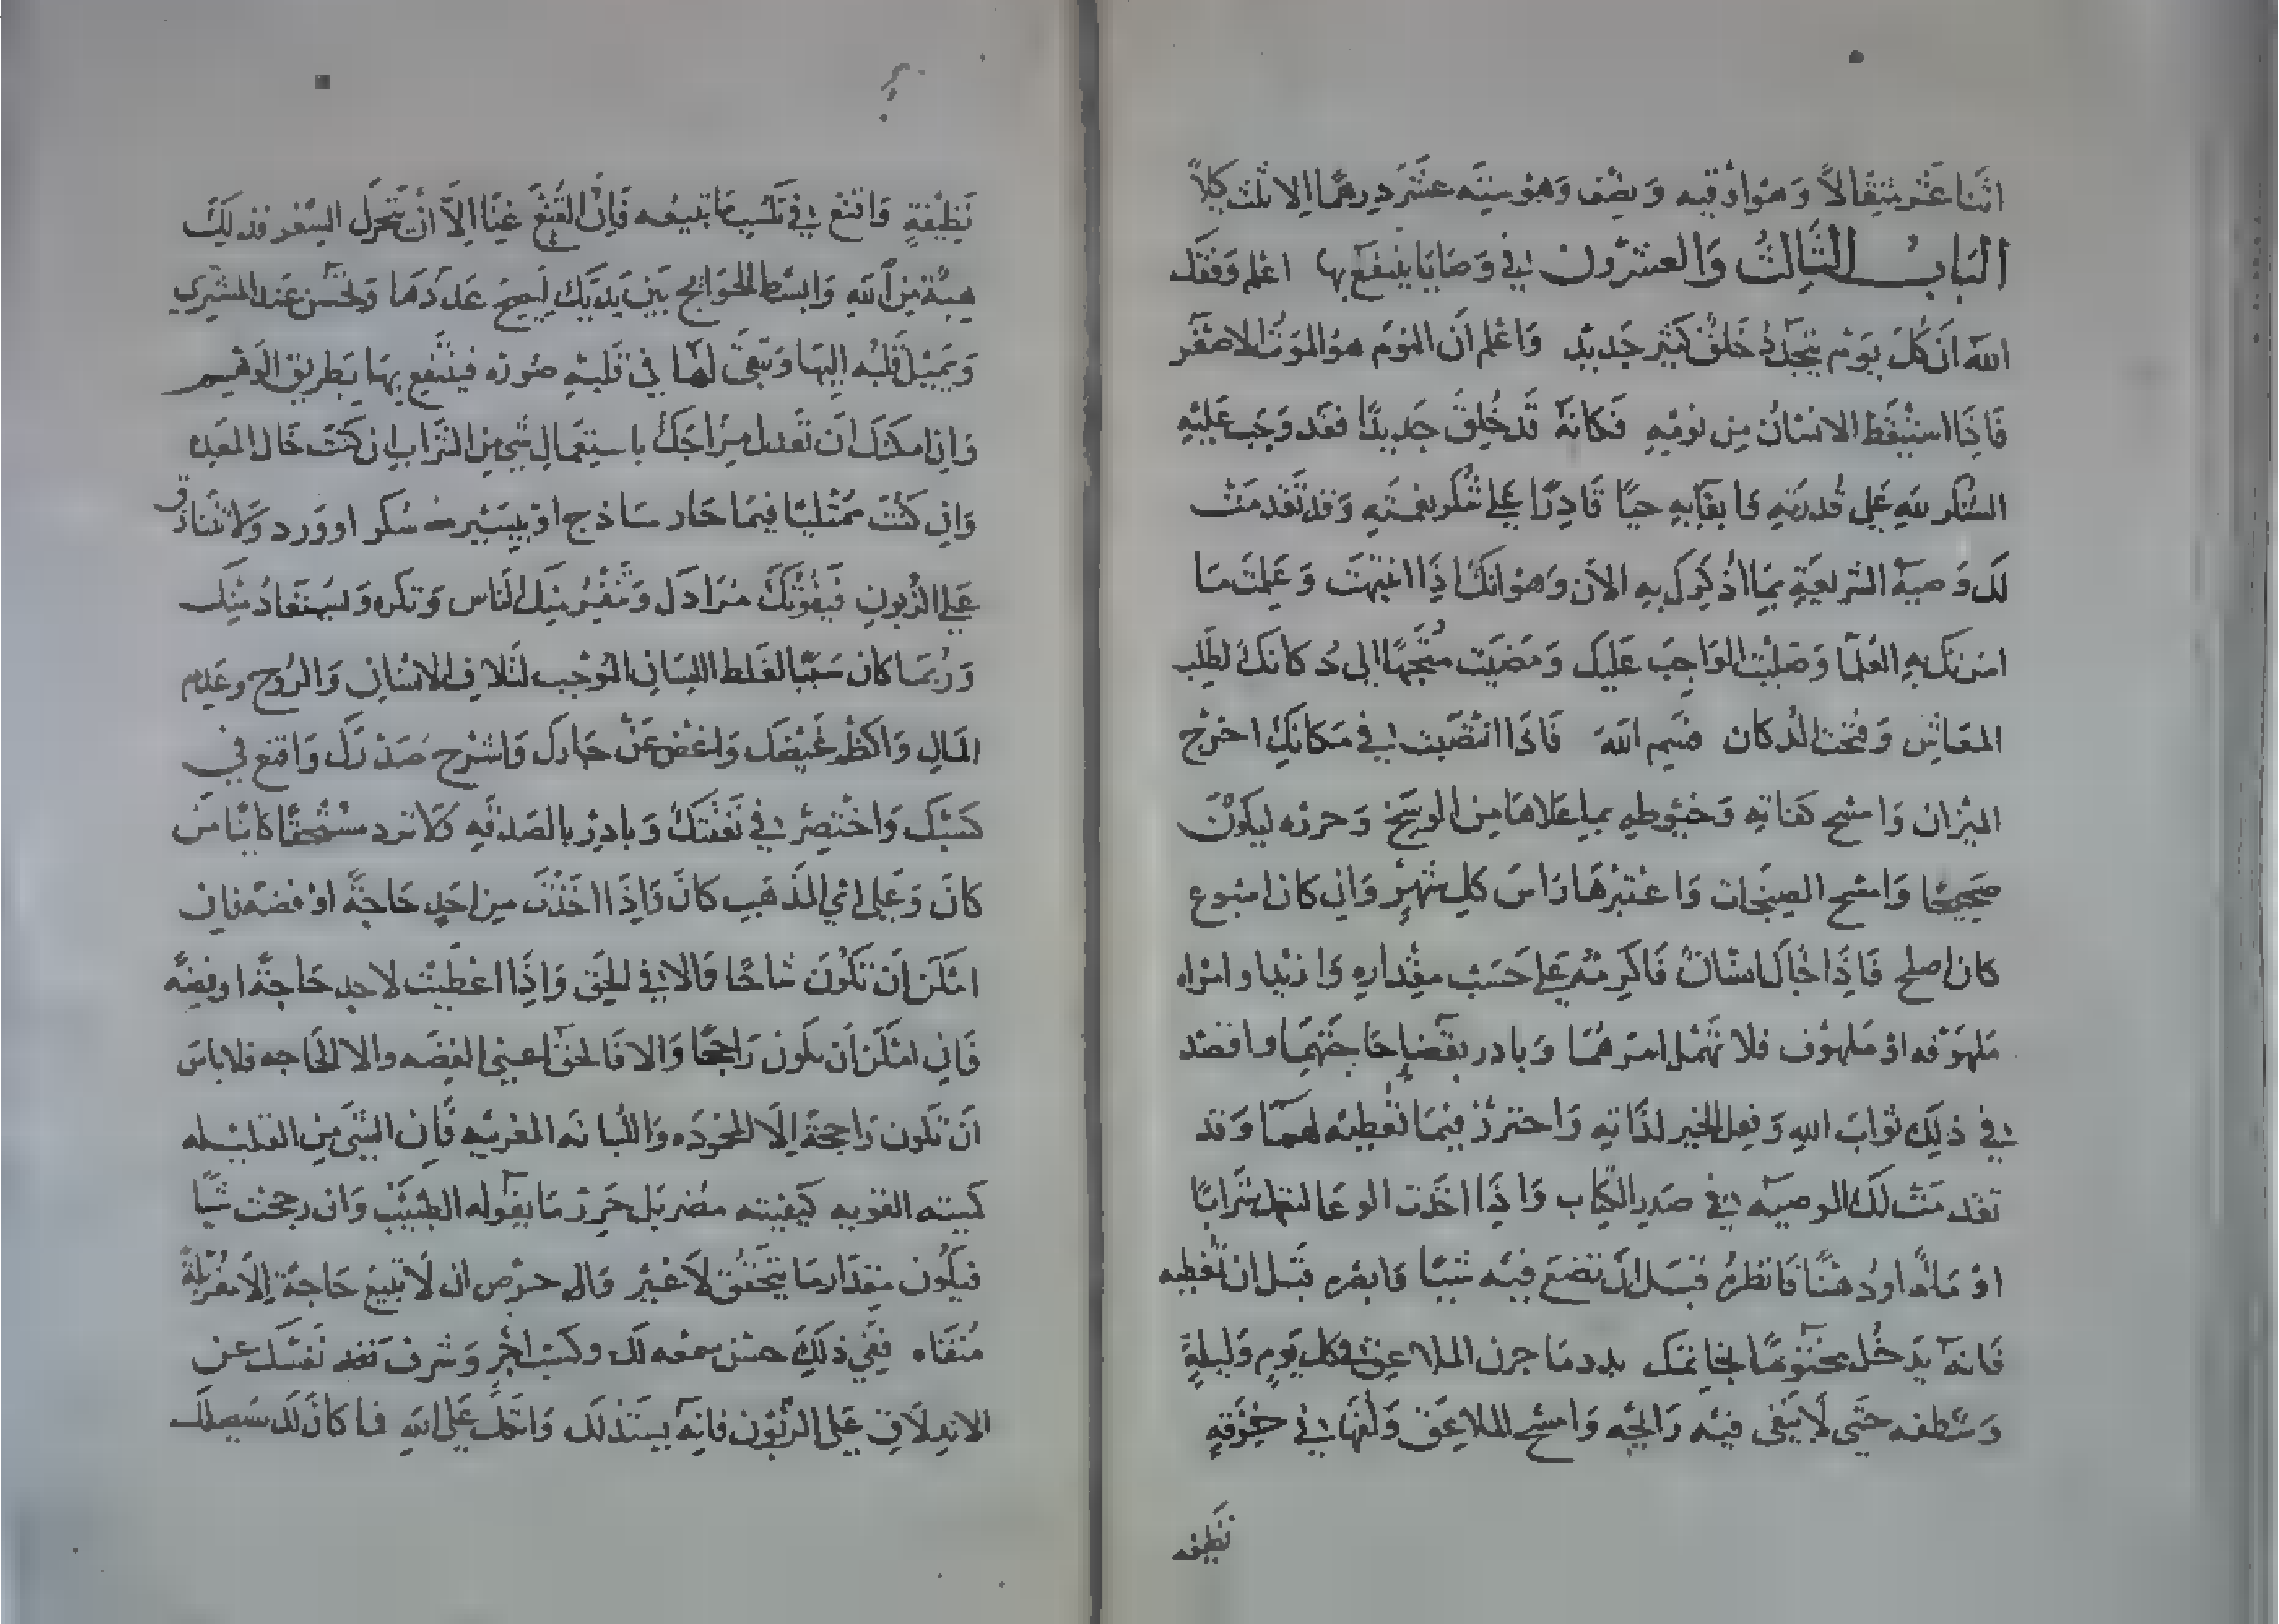 اثنا عَشر مثقالاً وَهوَ اوقيه وَنصف وَهوَ ستة عشر درهمًا الا ثلث كيلاً
البَابُ الثالثُ وَالعشرُون في وَصَايَا ينتفع بها اعلم وَفقك
الله انَ كلَ يَوم يتجدّد خَلقٌ كثير جَديد وَاعلم ان النوم هوَ الموَت الاصغَر
فَاذا استيقظ الانسَان من نومه فكانه قَد خُلِقَ جَديدًا فقَد وَجَب عَليه
الشكر لله عَلى قُدرته وَابقايه حيًا قَادرًا عَلى شكر نعمته وَقد تقدمت
لك وَصية الشريعة بمَا اذكرك به الان وَهوَ انك اذا انتبهت وَعَملت مَا
امرتك به العُلما وَصليت الوَاجب عَليك وَمَضيت متجهًا الى دكانك لطلب
المعَاش وَفتحت الدكان فسَم الله فَاذا انتصَبت في مَكانك اخرج
الميزان وَامسح كفاته وَخيوطه مما عَلاها من الوسخ وَحرره ليكون
صَحيحًا وَامسح الصنجات وَاعتبرهَا رَاسَ كل شهر وَان كان اسبوع
كان اصلح فَاذا جَاك انسَان فَاكرمه عَلى حَسَب مقداره وَان بدا وامراه
مَلهوفه اوْ مَلهوف فلا تهمل امرهمَا وَبادر بقضا حَاجَتهمَا واقصد
في ذلك ثوابَ الله وَفعل الخير لذاته وَاحترز فيمَا تعُطيه لهمَا وَقد
تقدمَت لك الوصيه في صَدر الكتاب وَاذا اخذت الوعا لتعمل شرابًا
اوْ مَاءً او دهنًا فَانظره قبَل ان تضع فيه شيئًا وَابصره قبَل ان تعطيه
فَانه يدَخُل مختومًا بخاتمك بدد مَا جرن الملاعق وكل يَوم وَليلة
وَشطفه حَتى لَا يبَقى فيه رَائحه وَامسح الملاعَق وَلفهَا في خرقة
نظيفه
نَظيفةٍ وَاقنع في كَسب مَا تبيعه فَان القُنعَ غنًا الاَّ انْ يتحَرك السّعر فذلكَ
هبَة من الله وَابسَط الحوَايج بَين يَديك لَيصحَ عَددهَا وَتحسن عند المشتري
وَيميل قلبه اليهَا وَتبقى لهَا في قلبه صُورَه فينتفع بهَا بطريق الوَهم
وَان امكنك ان تعَدل مزاجك باستعمَال شي من الشراب ان كنت خَال المعَده
وَان كنت مُمتليًا فيمَا حَار سَاذج اوْ بيسير من سُكر او وَرد وَلا تتنازق
عَلى الزبون فَيفوتك مُرَادك وَتنفر منك الناس وَتكره وَيُستعَاذ منك
وَرُبمَا كان سَببًا لغلط اللسَان الموجب لتلاف الانسَان وَالرُوح وعَدم
المَال وَاكظم غَيضك وَاغضِ عَنْ جَارك وَاشرح صَدرك وَاقنع في
كسَبك وَاختصر في نَفقتك وَبادِر بالصَدقه وَلا ترد مستحقًا كائنًا مَن
كانَ وَعَلى اي المَذهَب كانَ وَاذَا اخَذتَ من احَدٍ حَاجةً اوْ فضة فان
امَكن ان تكونَ شاحًا وَالا في الحَق وَاذَا اعْطيت لاحد حَاجةً او فضةً
فَان امَكن ان يكون رَاجحًا وَالا فَالحق اعني الفضَه والا الحَاجه فلا باسَ
انَ تكون رَاجحةً الا المحمودَه وَاللبانه المغربيه فَان الشي من القليله
كميته القويه كيفيته مضر بَل حَرر مَا يقوله الطبيب وَان رجحت شيًا
فيكون مقدَار مَا يتحقق لَا غير وَالى حَرص ان لَا تبيعَ حَاجة الا مغربلة
مُنقاه ففي ذلكَ حسْن سمعه لك وكسب اجر وَشرف نفس نفسَك عن
الاندلَاق عَلى الزبُون فانه يبَتذلك وَاتكل عَلى الله فما كانَ لك سَيصلك